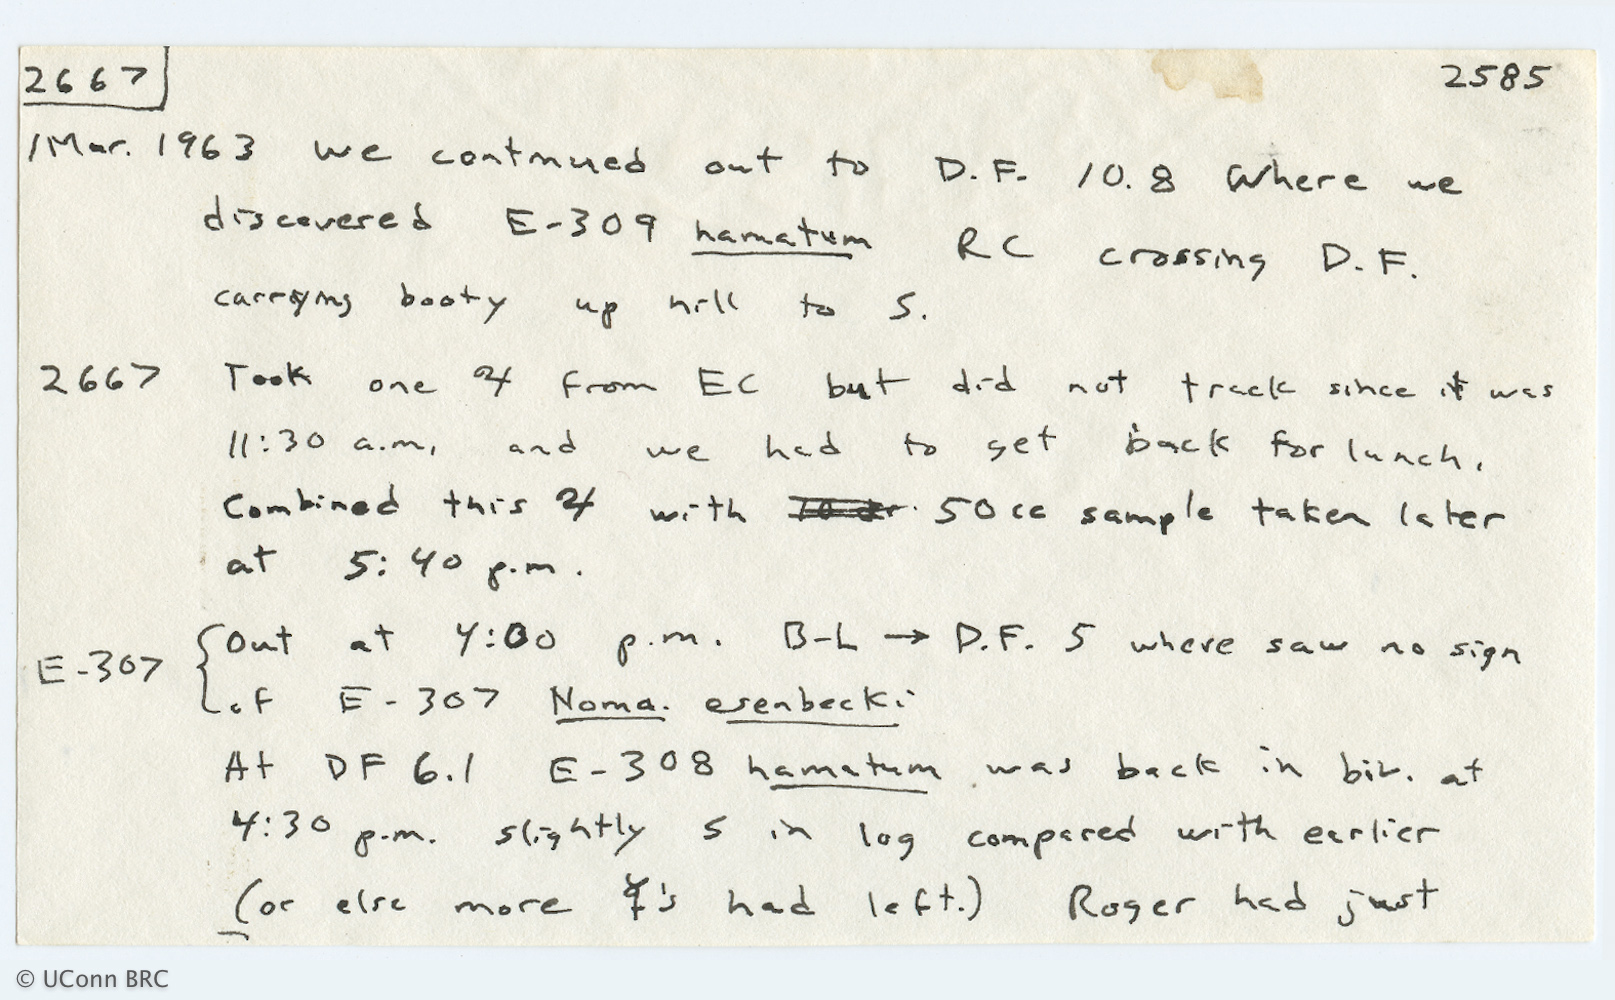 2667 2585
1 Mar. 1963 we continued out to D.F. 10.8 where we
discovered E-309 hamatum RC crossing D.F.
carrying booty up hill to S.
2667 Took one ♃ from EC but did not track since it was
11:30 a.m. and we had to get back for lunch.
Combined this ♃ with 50 cc sample taken later
at 5:40 p.m.
E-307 Out at 4:00 p.m. B-L → D.F. 5 where saw no sign
of E-307 Noma. esenbecki
At DF 6.1 E-308 hamatum was back in biv. at
4:30 p.m. slightly S in log compared with earlier
(or else more ☿'s had left.) Roger had just
© UConn BRC